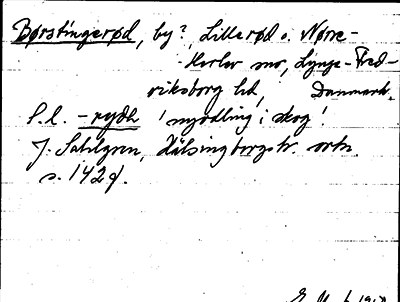 Børstingerød, by?, Lillerød o. Nørre-
-Herlev snr, Lynge-Fred-
riksborg hd, Danmark.
S. l. -rydh 'nyodling i skog'.
J. Sahlgren, Hälsingborgstr. ortn.
s. 142 f.